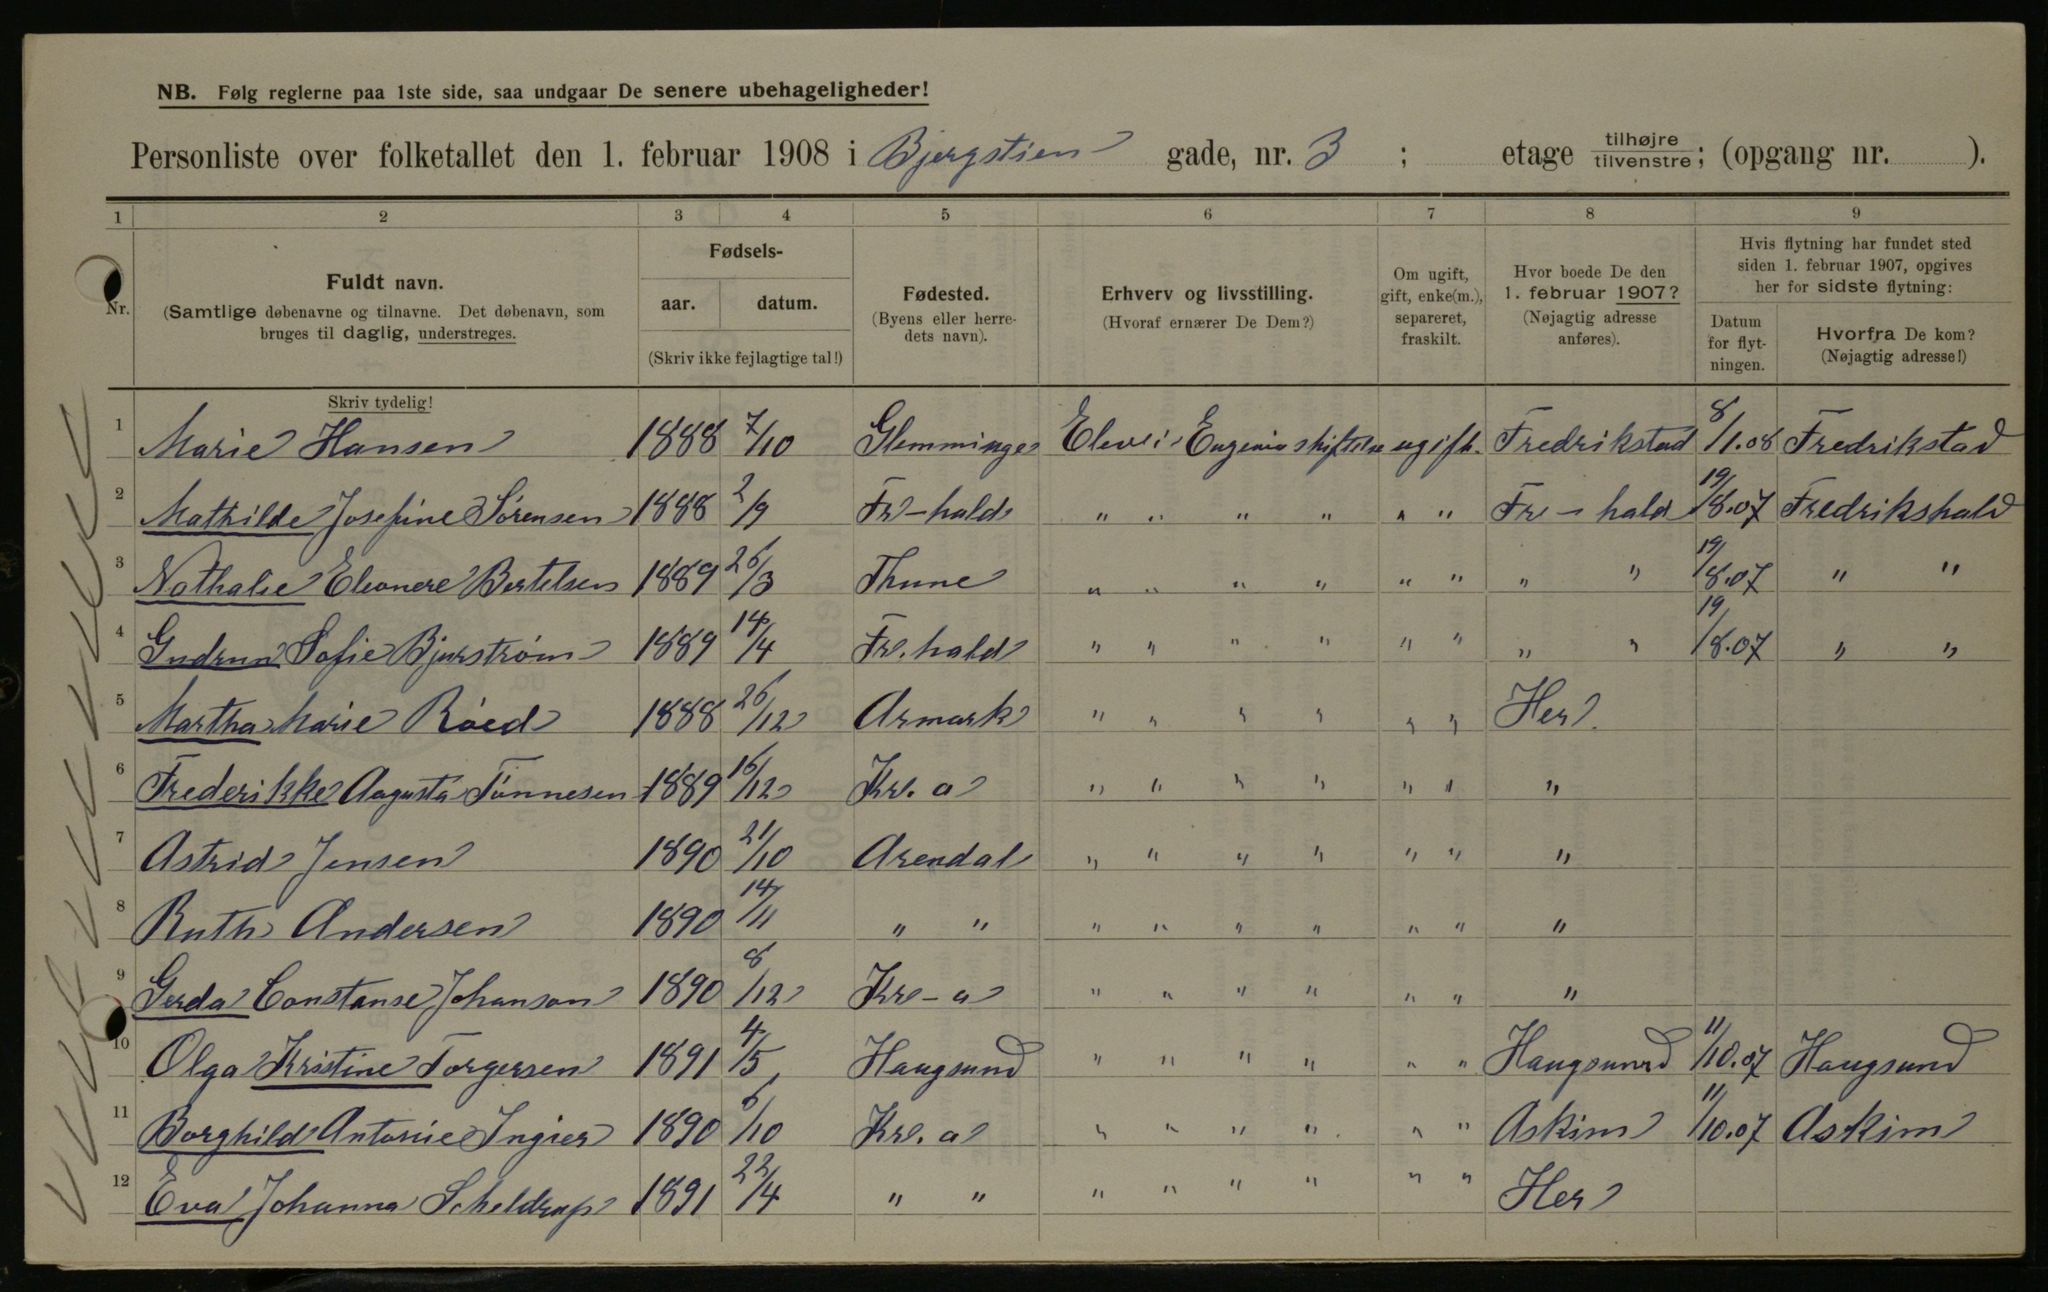 NB. Følg reglerne paa 1ste side, saa undgaar De senere ubehageligheder!
Personliste over folketallet den 1. februar 1908 i Bjergstien gade, nr. 3 ; etage tilhøjre tilvenstre; (opgang nr. ).
1 2 3 4 5 6 7 8 9
Nr.
Fuldt navn.
(Samtlige døbenavne og tilnavne. Det døbenavn, som
bruges til daglig, understreges.
Skriv tydelig!
Fødsels-
aar. datum.
(Skriv ikke fejlagtige tal!)
Fødested.
(Byens eller herre-
dets navn).
Erhverv og livsstilling.
(Hvoraf ernærer De Dem?)
Om ugift,
gift, enke(m.),
separeret,
fraskilt.
Hvor boede De den
1. februar 1907?
(Nøjagtig adresse
anføres).
Hvis flytning har fundet sted
siden 1. februar 1907, opgives
her for sidste flytning:
Datum
for flyt-
ningen.
Hvorfra De kom?
(Nøjagtig adresse!)
1 Marie Hansen 1888 7/10 Glemminge Elev i Eugenia stiftelse ugift. Fredrikstad 8/1.08 Fredrikstad
2 Mathilde Josefine Sørensen 1888 2/9 Fr-hald " " " " " " Fr-hald 19/8.07 Fredrikshald
3 Nathalie Eleonore Bertelsen 1889 26/3 Thune " " " " " " " " 19/8.07 " "
4 Gudrun Sofie Bjurstrøm 1889 14/4 Fr.hald " " " " " " " " 19/8.07 " "
5 Martha Marie Röed 1888 26/12 Armark " " " " " " Her.
6 Frederikke Augusta Tönnesen 1889 16/12 Kr.a " " " " " " "
7 Astrid Jensen 1890 21/10 Arendal " " " " " " "
8 Ruth Andersen 1890 14/11 " " " " " " " " "
9 Gerda Constanse Johanson 1890 8/12 Kr-a " " " " " " "
10 Olga Kristine Torgersen 1891 4/5 Haugsund " " " " " " Haugsund 11/10.07 Haugsund
11 Borghild Antonie Ingier 1890 6/10 Kr.a " " " " " " Askim 11/10.07 Askim
12 Eva Johanna Scheldrup 1891 22/4 " " " " " " " " Her